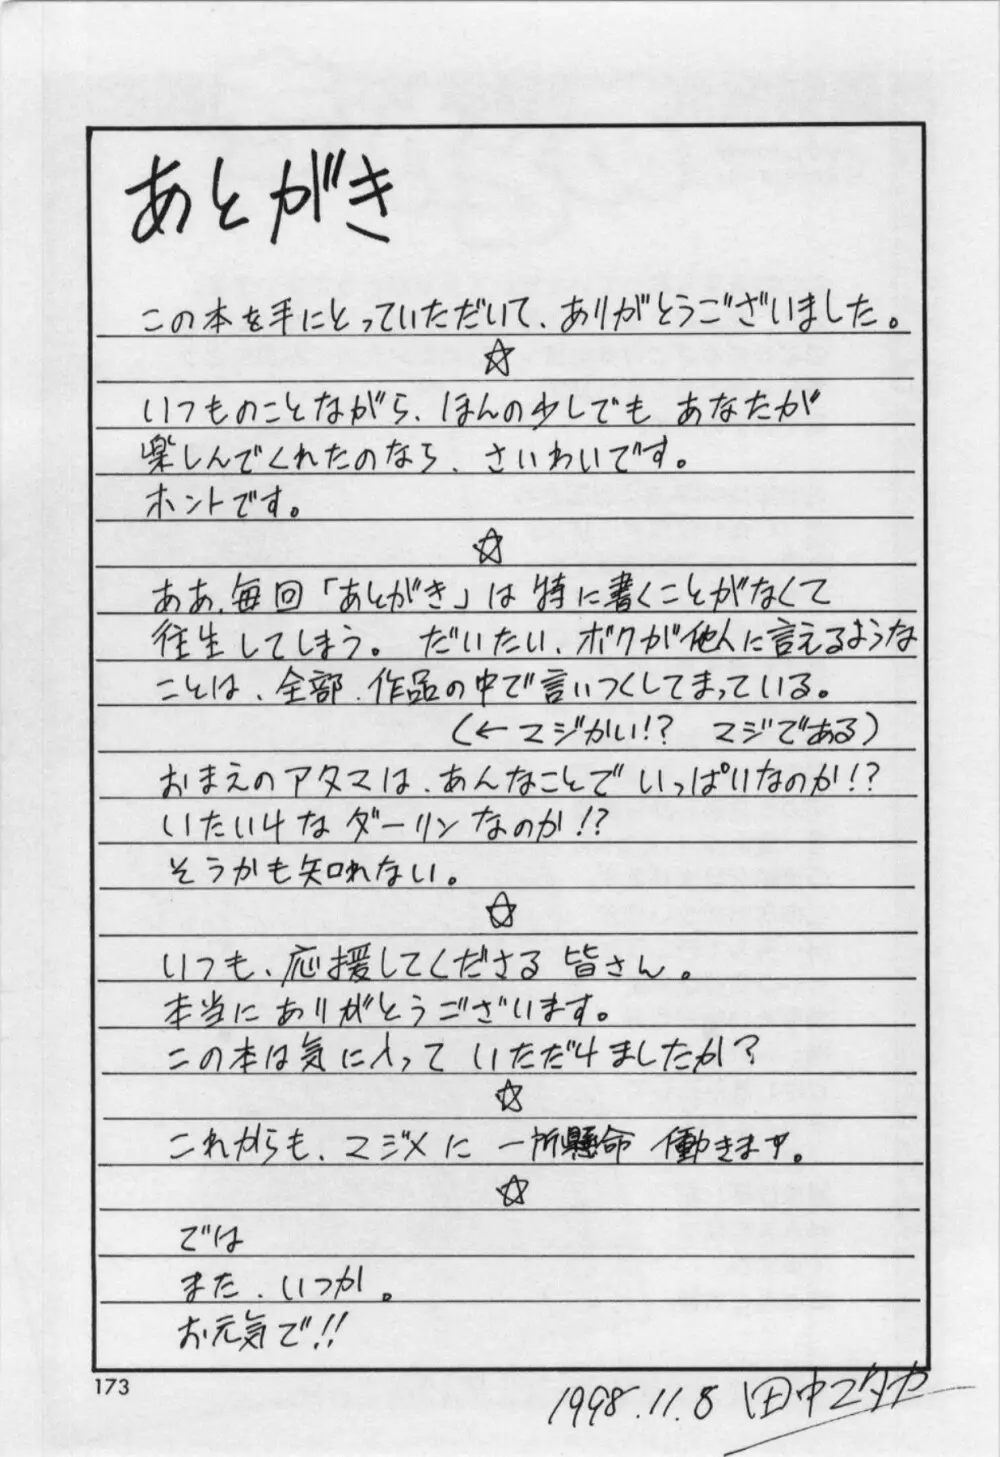 あとがき
この本を手にとっていただいて、ありがとうございました。
☆
いつものことながら、ほんの少しでも あなたが
楽しんでくれたのなら、さいわいです。
ホントです。
☆
ああ、毎回「あとがき」は特に書くことがなくて
往生してしまう。 だいたい、ボクが他人に言えるような
ことは、全部、作品の中で言いつくしてまっている。
(←マジかい!? マジである)
おまえのアタマは、あんなことで いっぱいなのか!?
いたいけなダーリンなのか!?
そうかも知れない。
☆
いつも、応援してくださる 皆さん。
本当にありがとうございます。
この本は気に入って いただけましたか?
☆
これからも、マジメに 一所懸命 働きます。
☆
では
また、いつか。
お元気で!!
173
1998.11.8 田中ユタカ